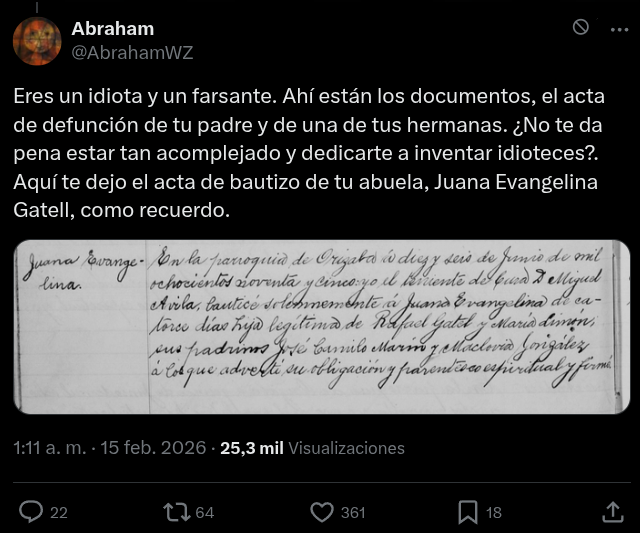 Abraham
@AbrahamWZ
Eres un idiota y un farsante. Ahí están los documentos, el acta
de defunción de tu padre y de una de tus hermanas. ¿No te da
pena estar tan acomplejado y dedicarte a inventar idioteces?.
Aquí te dejo el acta de bautizo de tu abuela, Juana Evangelina
Gatell, como recuerdo.
Juana Evange-
lina.
En la parroquia de Orizaba à diez y seis de Junio de mil
ochocientos noventa y cinco yo el teniente de Cura D Miguel
Avila, bauticé solemnemente á Juana Evangelina de ca-
torce días hija legítima de Rafael Gatel y María Limón,
sus padrinos José Camilo Marin y Maclovia González
á los que advertí su obligación y parentesco espiritual y firmé
1:11 a. m. · 15 feb. 2026 · 25,3 mil Visualizaciones
22
64
361
18